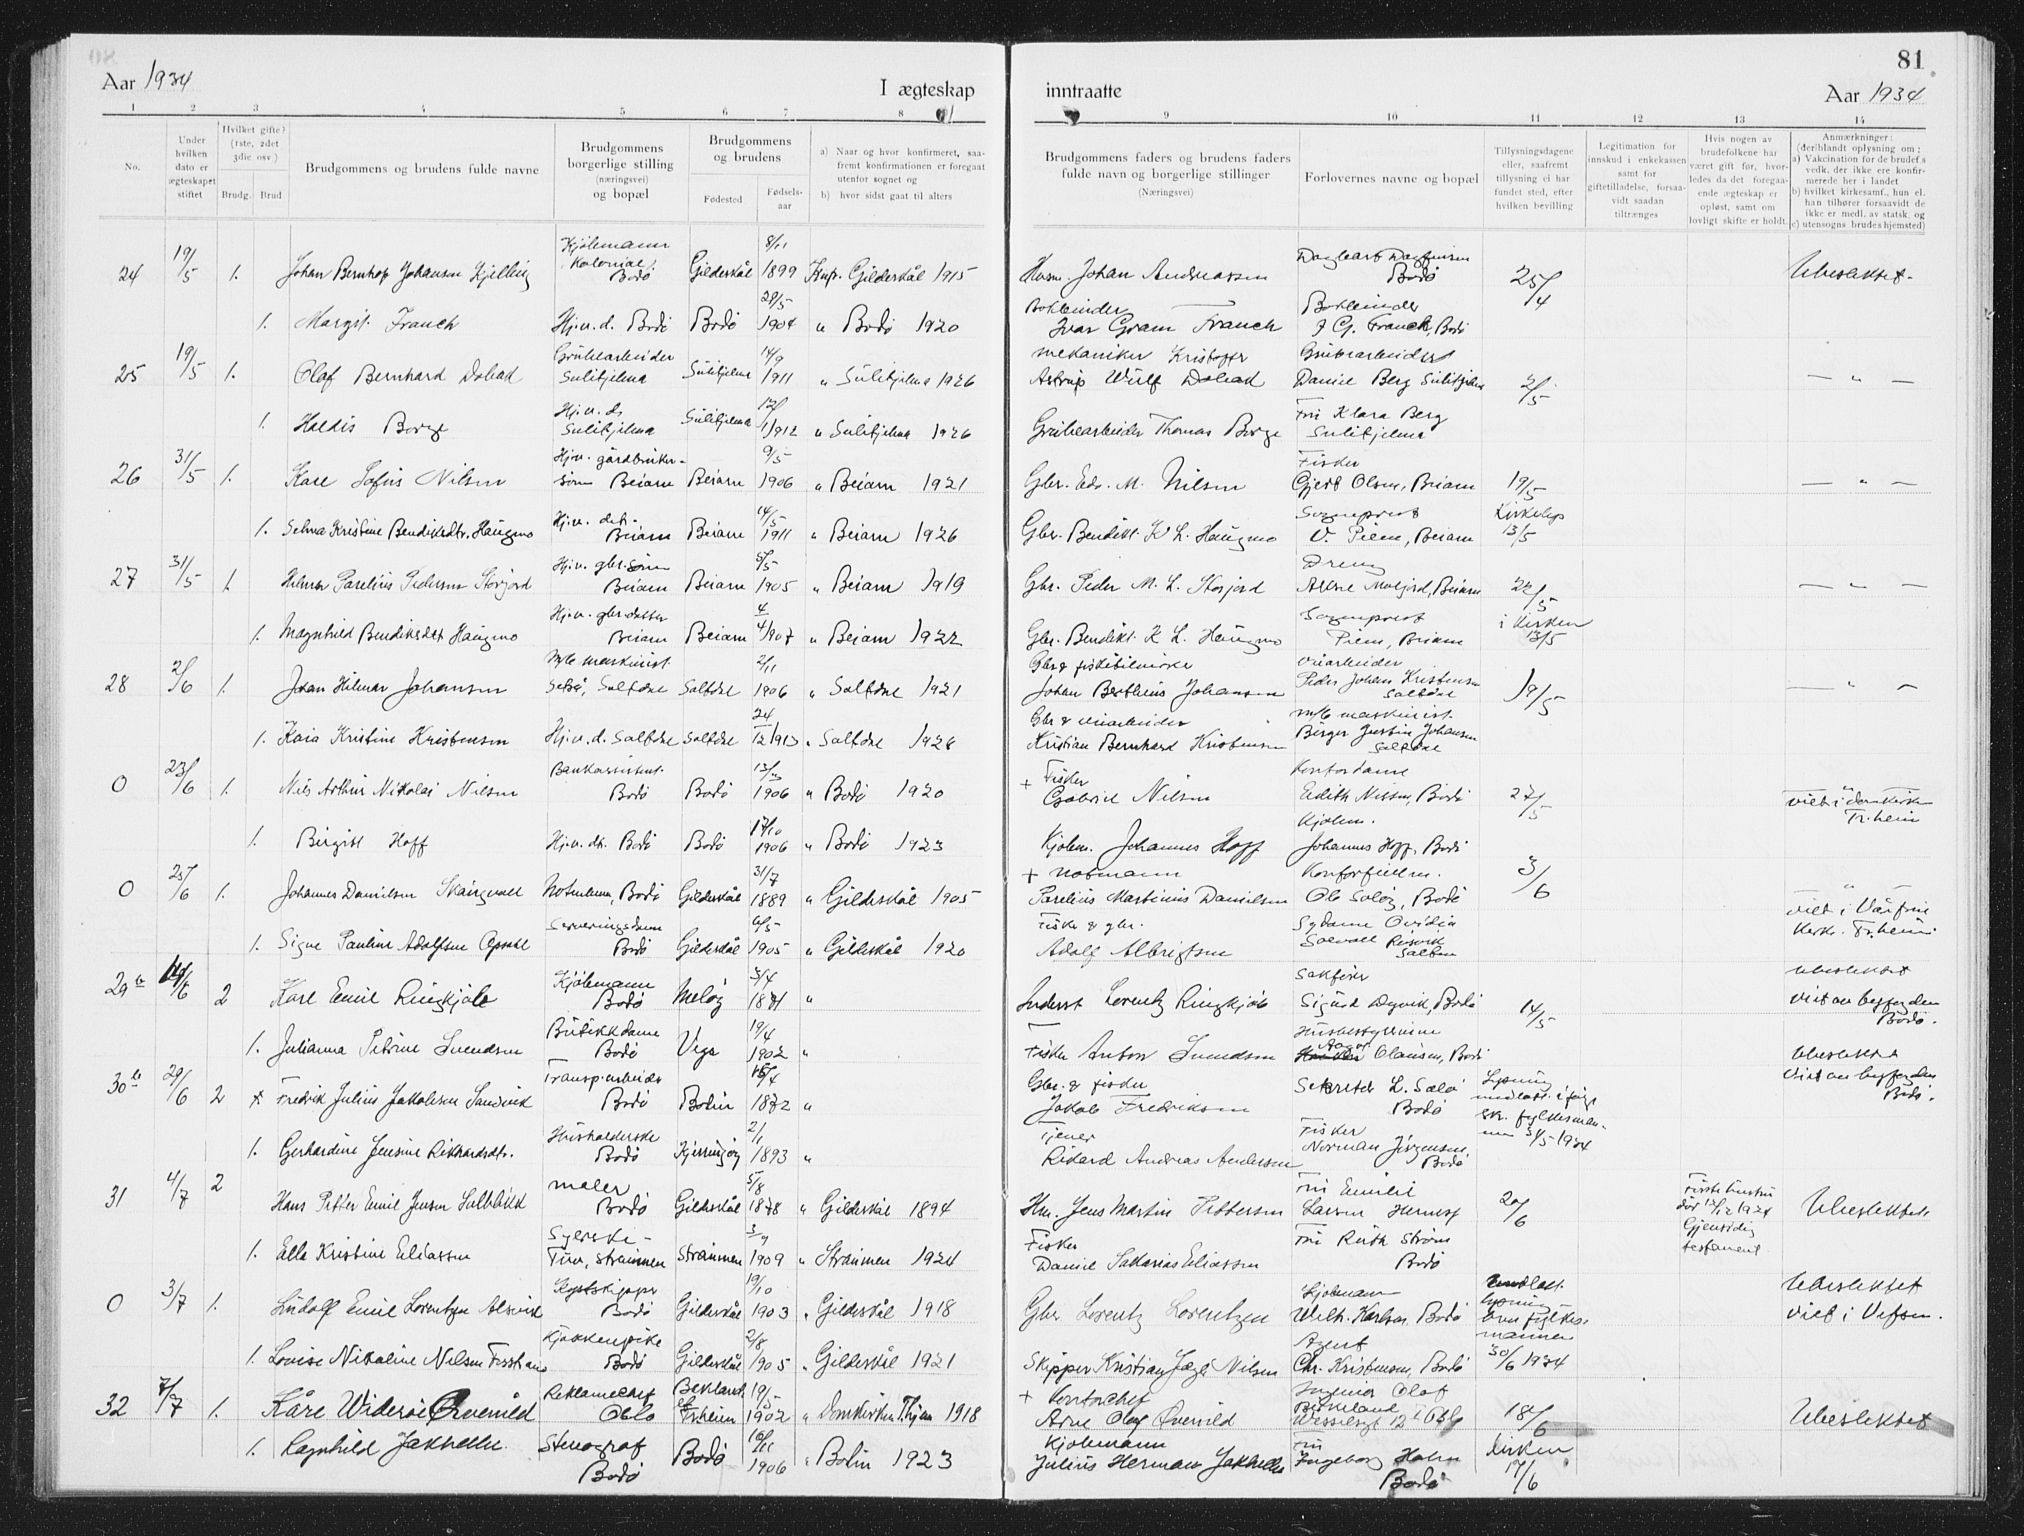 81
Aar 1934 I ægteskap inntraatte Aar 1934
1 2 3 4 5 6 7 8 9 10 11 12 13 14
No.
Under hvilken dato er ægteskapet stiftet
Hvilket gifte? (1ste, 2det 3die osv.)
Brudg. Brud
Brudgommens og brudens fulde navne
Brudgommens borgerlige stilling (næringsvei) og bopæl
Brudgommens og brudens
Fødested
Fødselsaar
a) Naar og hvor konfirmeret, saafremt konfirmationen er foregaat utenfor sognet og
b) hvor sidst gaat til alters
Brudgommens faders og brudens faders fulde navn og borgerlige stillinger (Næringsvei)
Forlovernes navne og bopæl
Tillysningsdagene eller, saafremt tillysning ei har fundet sted, efter hvilken bevilling
Legitimation for innskud i enkekassen samt for giftetilladelse, forsaavidt saadan tiltrænges
Hvis nogen av brudefolkene har været gift før, hvorledes da det foregaaende ægteskap er opløst, samt om lovligt skifte er holdt.
Anmærkninger: (deriblandt oplysning om: a) Vakcination for de brudef.s vedk. der ikke ere konfirmerede her i landet b) hvilket kirkesamf., hun el. han tilhører forsaavidt de ikke er medl. av statsk. og c) utensogns brudes hjemsted)
24 19/5 1. Johan Bernhof Johansen Kjelling Kjøbmann Kolonial, Bodø Gildeskål 8/11 1899 Knf. Gildeskål 1915 Johan Andreassen Bodø 25/4 Ubeslektet.
1. Margit Franck Hj.v.d. Bodø Bodø 28/5 1904 " Bodø 1920 Bokbinder Ivar Gram Franck Bokbinder J G. Franck, Bodø
25 19/5 1. Olaf Bernhard Dolead Grubearbeider Sulitjelma Sulitjelma 14/9 1911 " Sulitjelma 1926 mekaniker Kristoffer Astrup Wulf Dolead Grubearbeider Daniel Berg Sulitjelma 2/5 — " —
1. Haldis Borge Hj.v.d. Sulitjelma Sulitjelma 1912 " Sulitjelma 1926 Grubearbeider Thomas Borge Fru Klara Berg Sulitjelma
26 31/5 1. Kare Sofus Nilsen Hj.v. gårdbruker-sønn Beiarn Beiarn 9/5 1906 " Beiarn 1921 Gbr. Edv. M. Nilsen Fisker Gjert Olsen, Beiarn 19/5 — " —
1. Selma Kristine Bendiksdtr. Haugmo Hj.v. dtr. Beiarn Beiarn 14/5 1911 " Beiarn 1926 Gbr. Bendikt K L. Haugmo Sogneprest V. Piene, Beiarn 13/5
27 31/5 1. Hilmar Parelius Pedersen Storjord Hj.v. gbr.sønn Beiarn Beiarn 5/5 1905 " Beiarn 1919 Gbr. Peder M. L. Storjord Dreng Beiarn 22/5 — " —
1. Magnhild Bendiksdtr Haugmo Hj.v. gbr.datter Beiarn Beiarn 4/4 1907 " Beiarn 1922 Gbr. Bendikt K L. Haugmo Sogneprest Piene, Beiarn i Kirken 13/5
28 2/6 1. Johan Hilmar Johansen m/b maskinist Saltdal Saltdal 2/11 1906 " Saltdal 1921 Johan Berthius Johansen Peder Johan Kristensen Saltdal 19/5 — " —
1. Kaia Kristine Kristensen Hj.v.d. Saltdal Saltdal 24/12 1913 " Saltdal 1926 Kristian Bernhard Kristensen m/b maskinist. Birger Justin Johansen Saltdal
0 23/6 1. Nils Arthur Nikolai Nilsen Bankassistent Bodø Bodø 1906 " Bodø 1920 + Fisker Gabriel Nilsen Kontordame Edith Nilsen, Bodø 27/5 viet i Domkirken Tr.heim
1. Birgitt Hoff Hj.v.dt. Bodø Bodø 17/10 1906 " Bodø 1923 Kjøbm. Johannes Hoff Kjøbm. Johannes Hoff, Bodø
0 25/6 1. Johannes Danielsen Skaugvoll Bodø Gildeskål 31/7 1889 " Gildeskål 1905 + notmann Parelius Martinius Danielsen Ole Saløy, Bodø 3/6 viet i Vårfrue Kirke. Tr.heim
1. Signe Pauline Adolfsen Serveringsdame Bodø Gildeskål 6/5 1905 " Gildeskål 1920 Fisker & gbr. Adolf Albrigtsen Sydame Ovidia
29 b 14/6 2 Karl Emil Ringkjøb Kjøbmann Bodø Meløy 3/4 1871 " Inderst Lorentz Ringkjøb Sakfører Sigurd Dyrvik, Bodø 14/5 Ubeslektet viet av byfogden Bodø.
1. Julianna Petrine Svendsen Butikkdame Bodø Vega 19/4 1902 " Fisker Anton Svendsen Husbestyrerinne Clausen, Bodø
30 b 29/6 2 x Fredrik Julius Jakobsen Sandvik Transp.arbeider Bodø Bodin 1872 " Gbr. & fisker Jakob Fredriksen Sekretær L. Sælø Bodø Lysning undlatt ifølge fylkesmannen 31/5-1934 Ubeslektet Viet av byfogden Bodø.
1. Gerhardine Jensine Rikhardsdtr. Husholderske Bodø Kjerringøy 2/1 1893 " Tjener Rikard Andreas Andersen Fisker Norman Jørgensen, Bodø
31 4/7 2 Hans Petter Emil Jensen maler Bodø Gildeskål 5/8 1878 " Gildeskål 1894 Hm. Jens Martin Pettersen Fru Emilie Larsen 20/6 Første hustru død 12/12 1924 Gjensidig testament Ubeslektet
1. Ella Kristine Eliassen Syerske- Tuv, Straumen Straumen 1909 " Straumen 1924 Fisker Daniel Sakarias Eliassen Fru Ruth Strøm Bodø
0 3/7 1. Ludolf Emil Lorentzen Alsvik Kystskipper Bodø Gildeskål 19/10 1903 " Gildeskål 1918 Gbr. Lorentz Lorentzen Kjøbmann Wilh. Karlsen, Bodø undlatt lysning fylkesmannen 30/6 1934 Ubeslektet viet i Vefsen.
1. Lovise Nikoline Nilsen Kjøkkenpike Bodø Gildeskål 2/8 1905 " Gildeskål 1921 Skipper Kristian Jægt Nilsen Agent Chr. Kristensen, Bodø
32 7/7 1. Kåre Widerøe Ørverild Reklamechef Oslo 19/5 1902 " Domkirken Thjem 1918 + Kontorchef Arne Olag Øverild Ingeniør Olaf 18/6 Ubeslektet
1. Ragnhild Jakhelln. Stenograf Bodø Bodø 10/11 1906 " Bodin 1923 Kjøbmann Julius Herman Jakhelln Fru Ingeborg Holm Bodø kirken 17/6